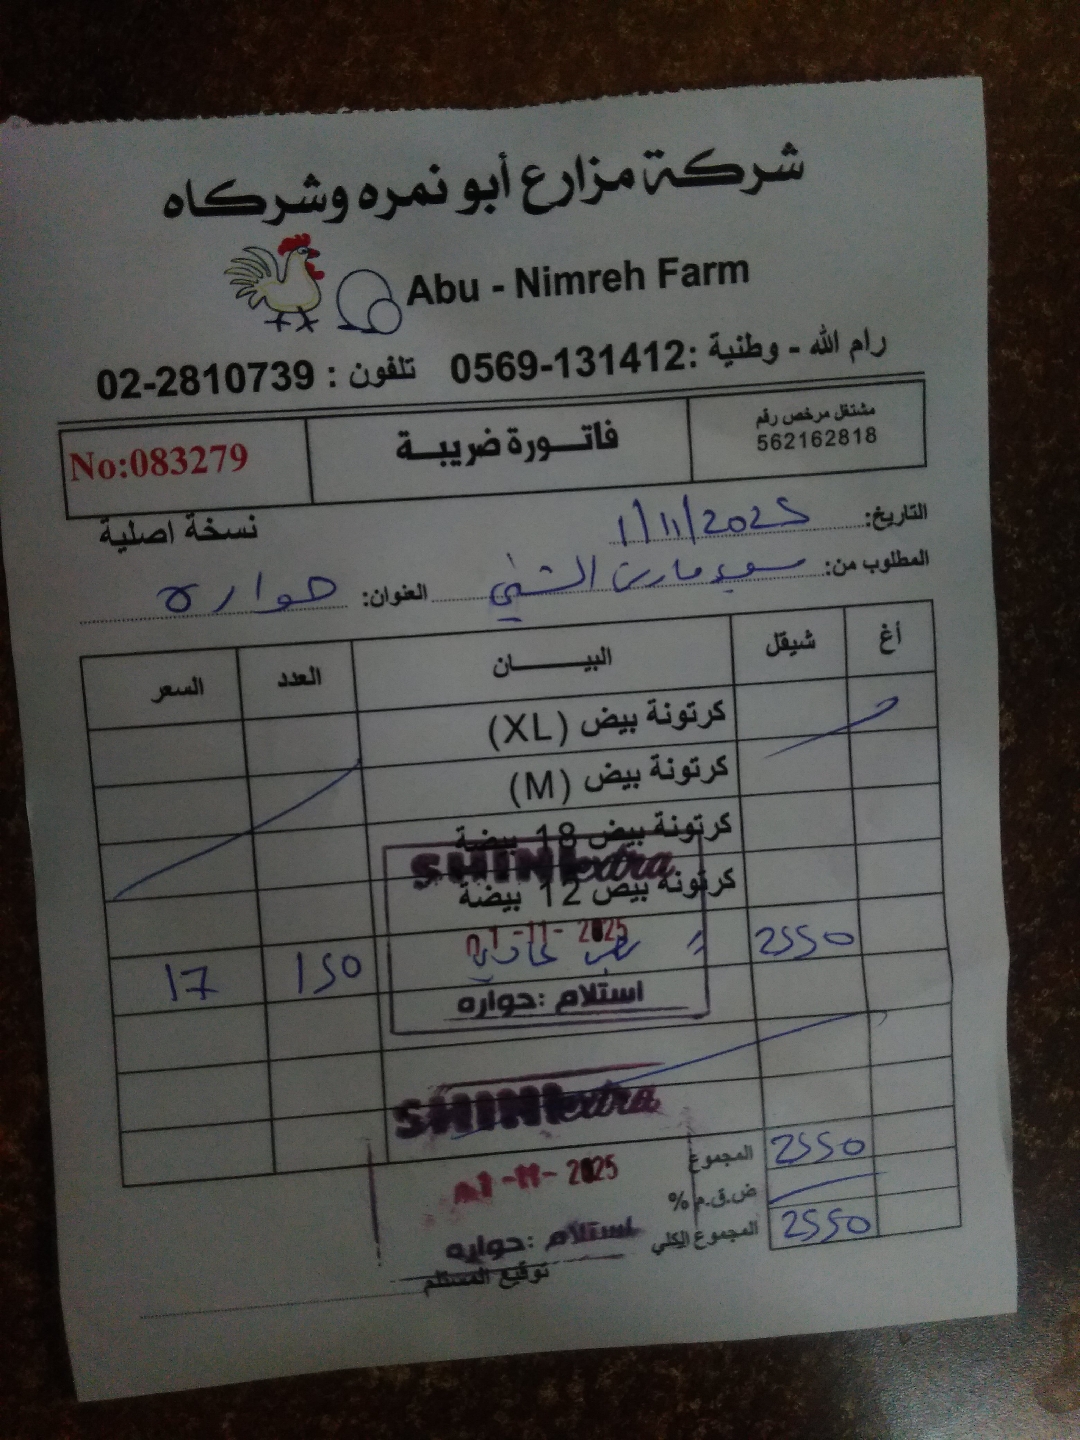 شركة مزارع أبو نمره وشركاه
Abu - Nimreh Farm
رام الله - وطنية: 0569-131412 تلفون: 02-2810739
مشتغل مرخص رقم
562162818
فاتورة ضريبة
No:083279
نسخة اصلية
التاريخ: 1/11/2025
المطلوب من: سوبر ماركت الشني العنوان: حواره
أغ شيقل البيان العدد السعر
كرتونة بيض (XL)
كرتونة بيض (M)
كرتونة بيض 18 بيضة
كرتونة بيض 12 بيضة
SHINI extra
01-11-2025
2550 " 150 17
استلام: حواره
SHINI extra
المجموع 2550
01-11-2025
ض.ق.م %
المجموع الكلي 2550
استلام: حواره
توقيع المستلم